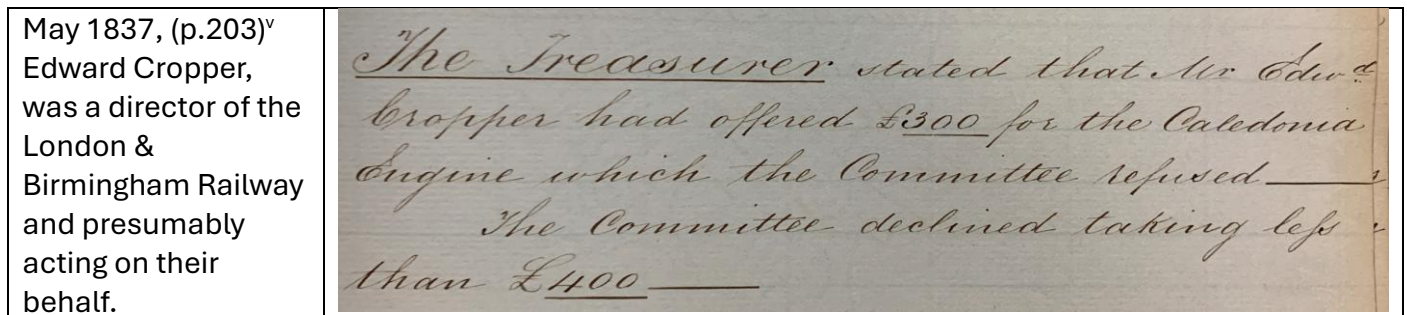 May 1837, (p.203)ᵛ
Edward Cropper,
was a director of the
London &
Birmingham Railway
and presumably
acting on their
behalf.
The Treasurer stated that Mr Edwd
Cropper had offered £300 for the Caledonia
Engine which the Committee refused
The Committee declined taking less
than £400